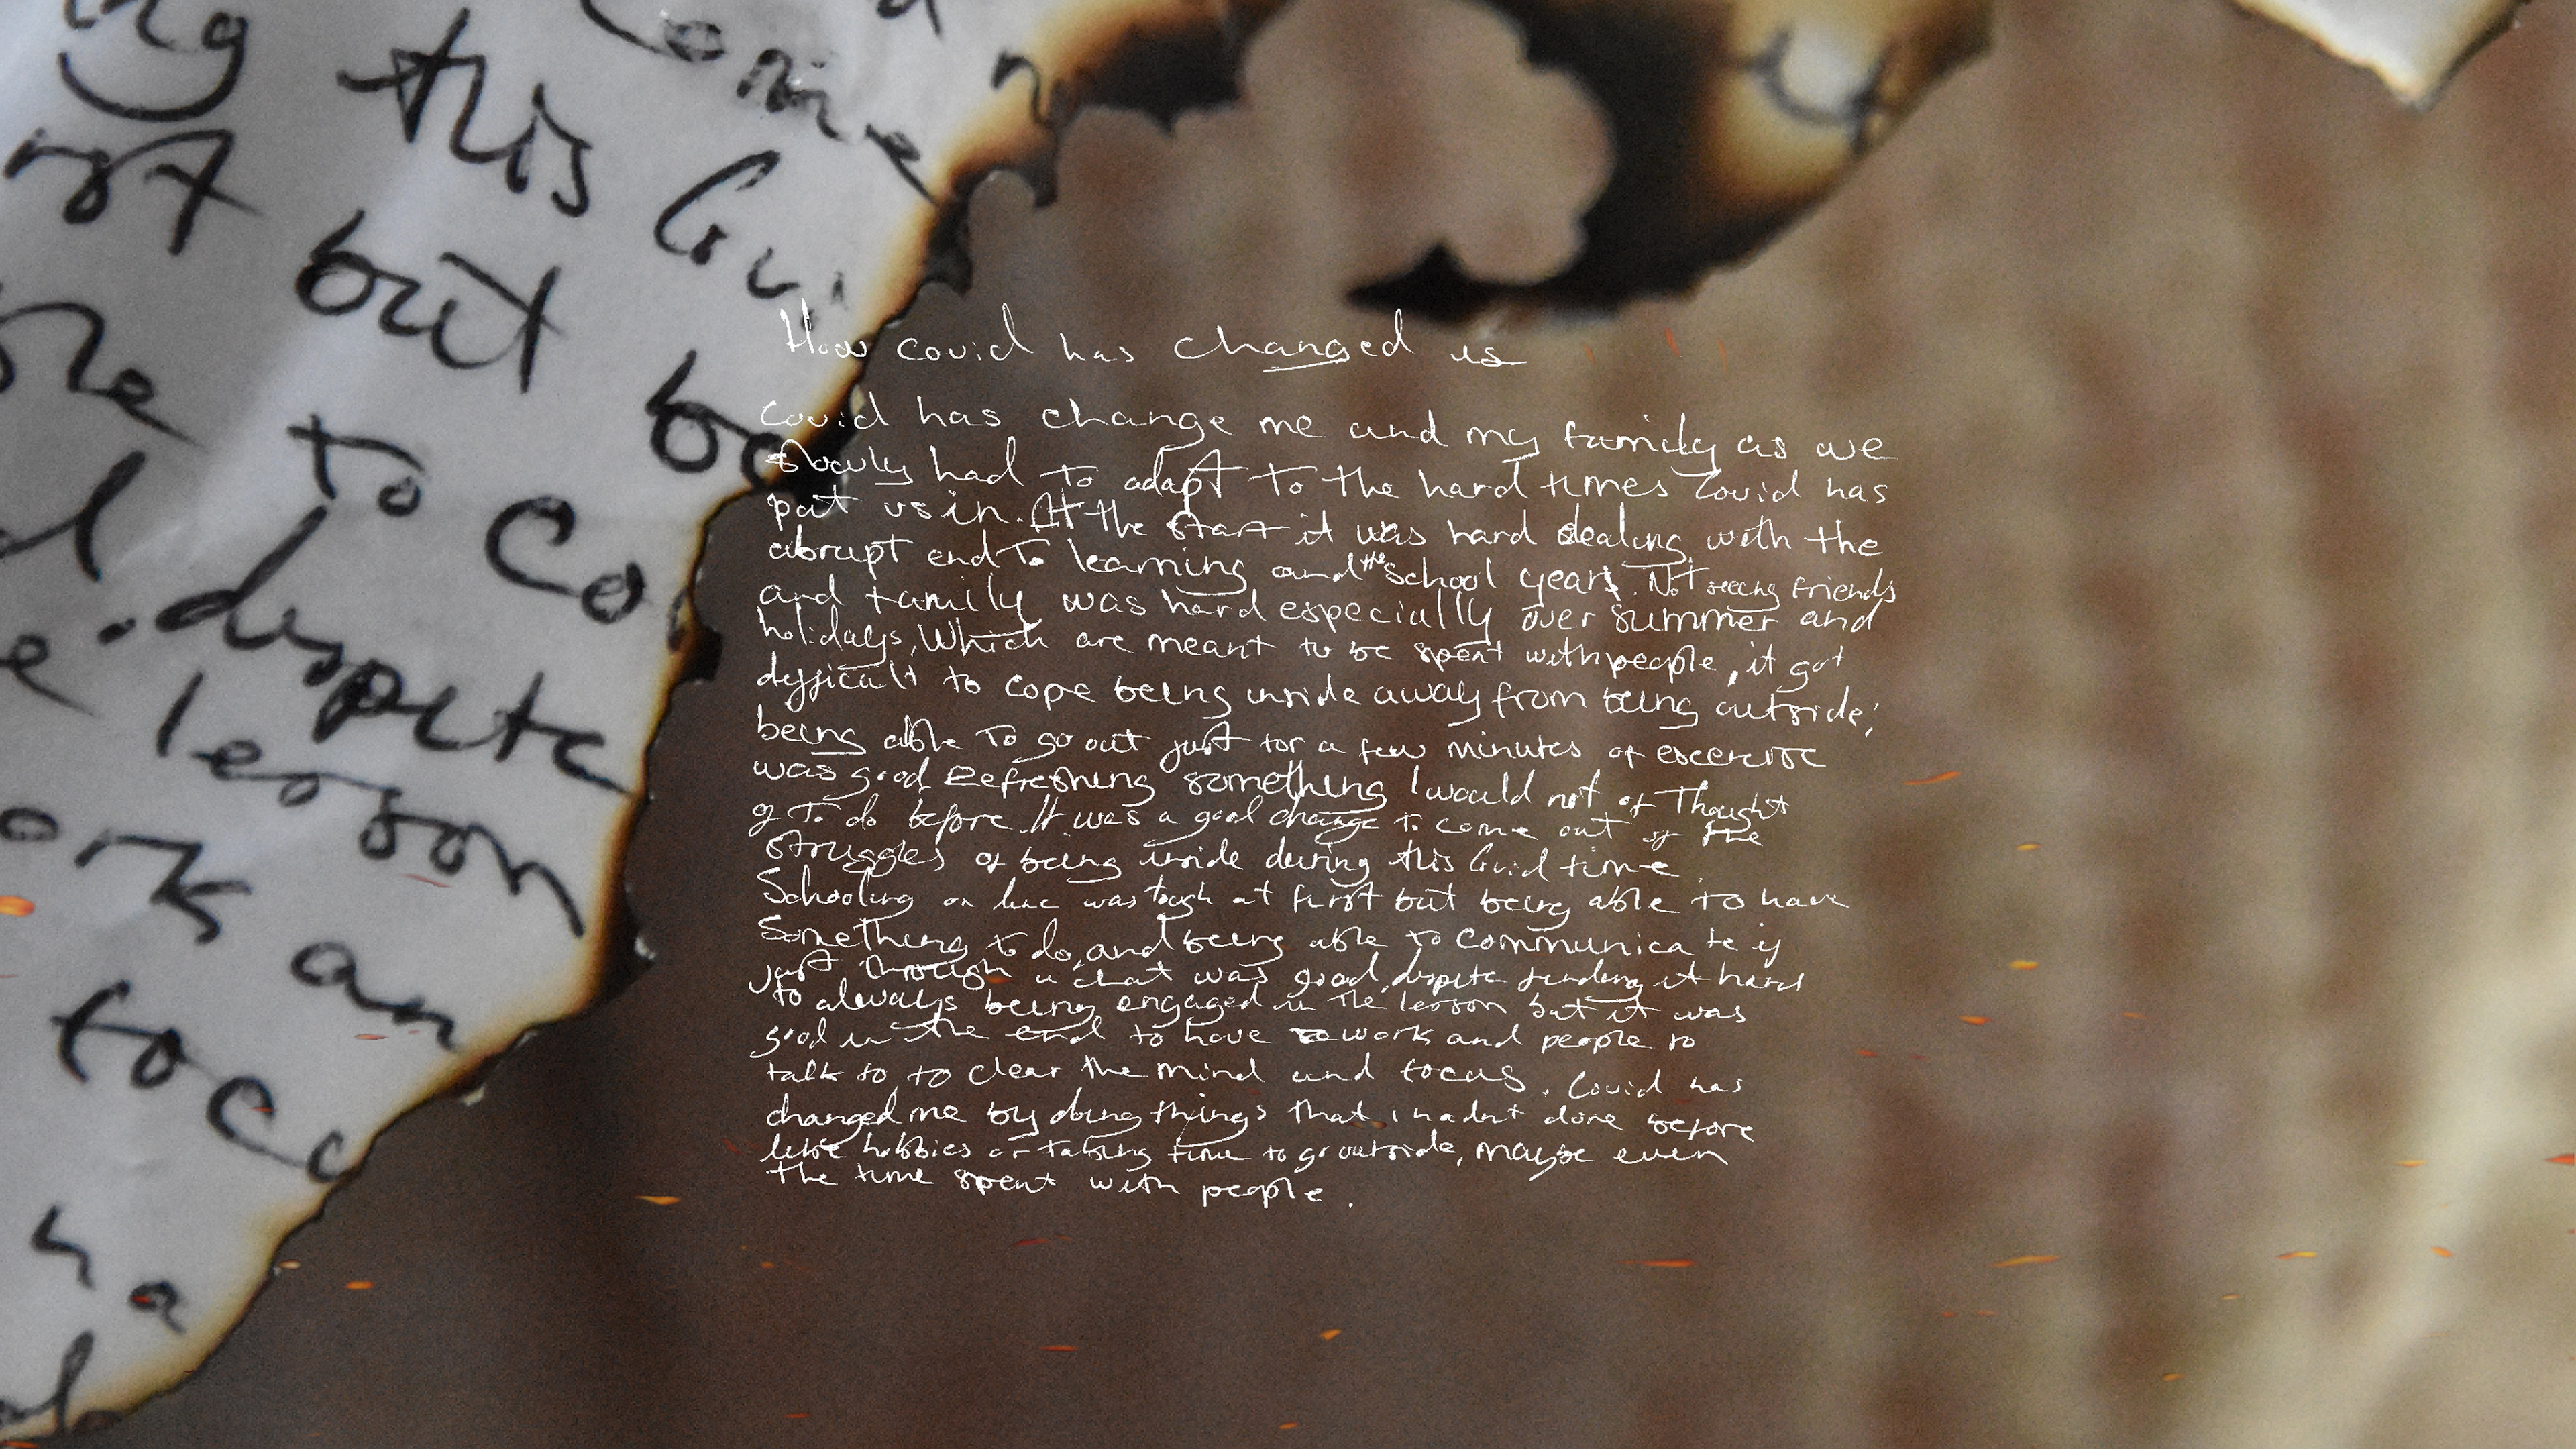 ng this Covi
come n
rst but be
to Co
dispite
e lesson
an
to co
ha
How covid has changed us
Covid has change me and my family as we
slowly had to adapt to the hard times Covid has
put us in. At the start it was hard dealing with the
abrupt end to learning and the school years. Not seeing friends
and family was hard especially over summer and
holidays, which are meant to be spent with people, it got
difficult to cope being inside away from being outside,
being able to go out just for a few minutes of excercise
was good refreshing something I would not of Thought
of to do before. It was a good change to come out of the
struggles of being inside during this Covid time.
Schooling on line was tough at first but being able to have
Something to do, and being able to communicate if
just through a chat was good, dispite finding it hard
to always being engaged in the lesson but it was
good in the end to have work and people to
talk to to clear the mind and focus. Covid has
changed me by doing things that i hadnt done before
like hobbies or taking time to go outside, maybe even
the time spent with people.